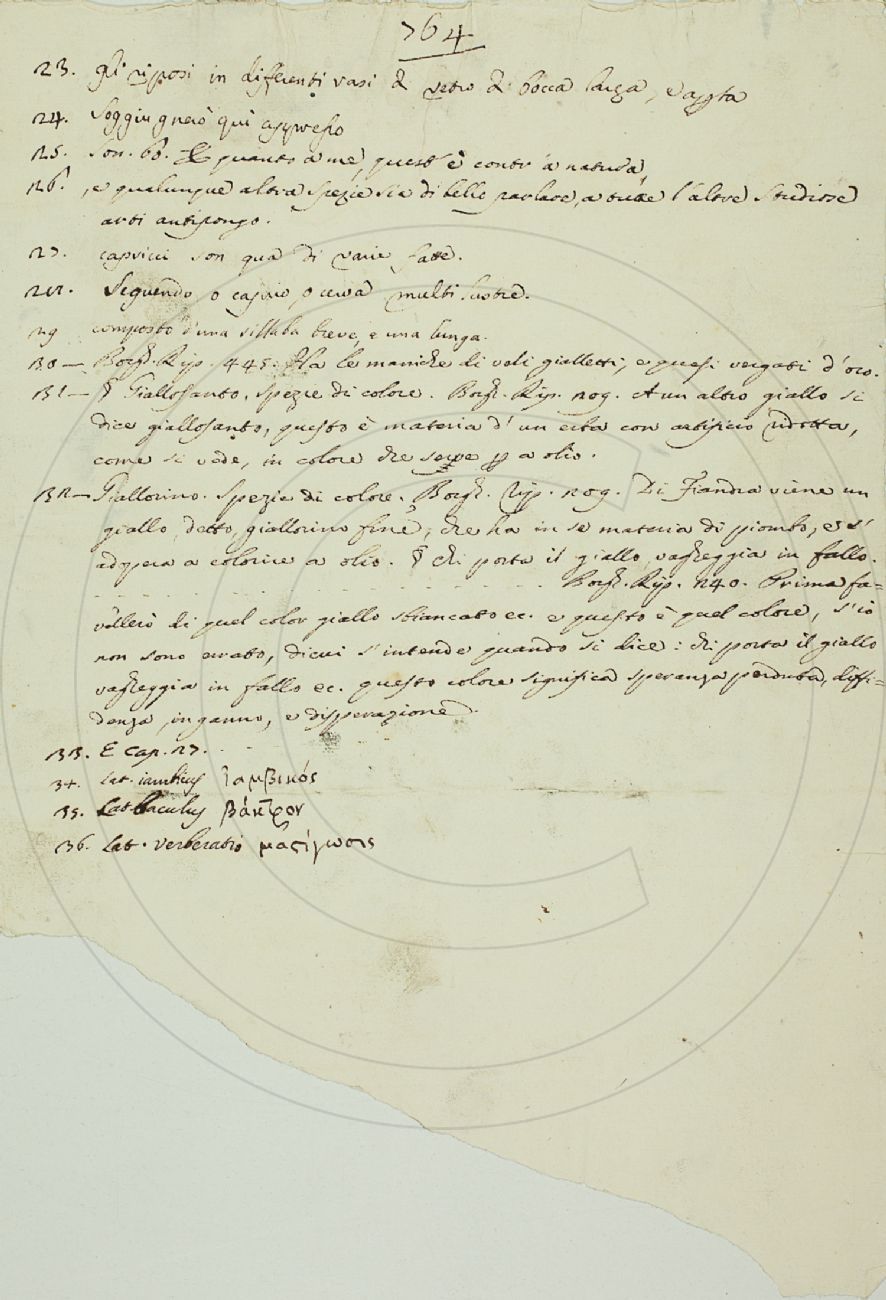 764
23. gli riposi in differenti vasi di vetro di bocca larga, e aperta
24. Soggiugnerò quì appresso
25. son. 60. E quanto a me, quest' è contr' a natura
26. , e qualunque altra spezie sia di bello parlare, a tutte l'altre studiose
arti antipongo.
27. capricci son qua di varie fatte.
28. Seguendo
29 composto d'una sillaba breve, e una lunga.
30 — Borgh. Rip. 445. Ha le maniche di veli gialletti, e quasi vergati d'oro.
31 — § Giallosanto. Spezie di colore. Borgh. Rip. 209. A un altro giallo si
dice giallosanto, questo è materia d'un erba con artificio ridotta,
come si vede, in colore che serve a olio.
32 — Giallorino. Spezie di colore. Borgh. Rip. 209. Di Fiandra viene un
giallo detto, giallorino fine, che ha in se materia di piombo, e s'
adopera a colorire a olio. § chi porta il giallo vagheggia in fallo.
Borgh. Rip. 240. Prima fa=
vellerò di quel color giallo sbiancato ec. e questo è quel colore, s'io
non sono errato, di cui s'intende quando si dice: chi porta il giallo
vagheggia in fallo ec. questo colore significa speranza perduta, diffi=
denza, inganno, e disperazione.
33. E cap. 27.
34. Lat. iambicus ἰαμβικός
35. Lat. baculus βάκτρον
36. Lat. verberatio μαςίγωσις